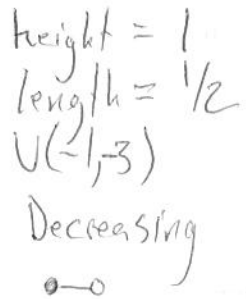 height = 1
length = 1/2
V(-1,-3)
Decreasing